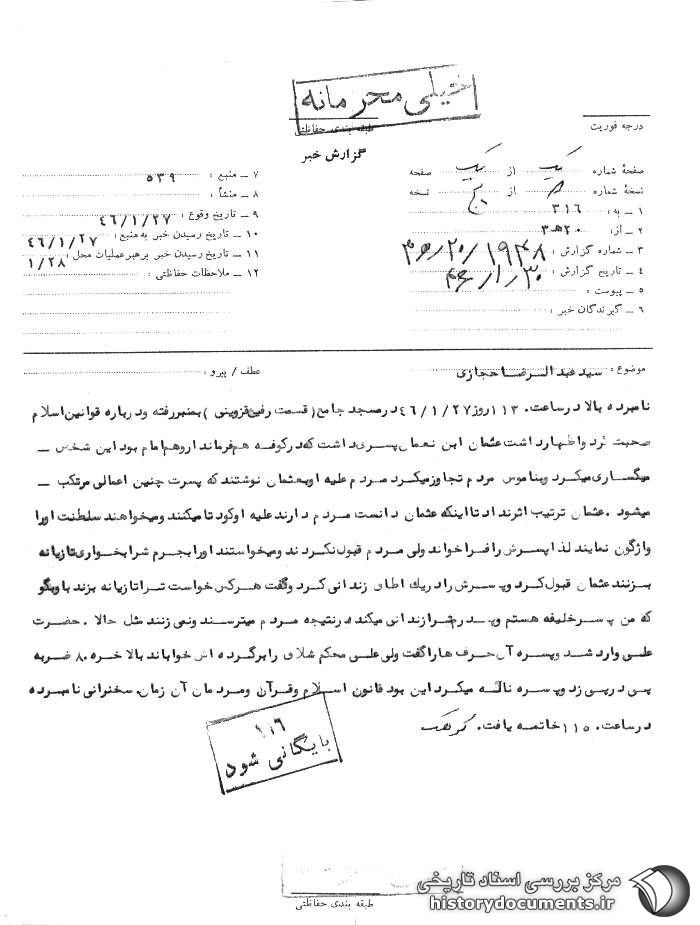 خیلی محرمانه
طبقه بندی حفاظتی
گزارش خبر
درجه فوریت
صفحهٔ شماره یک از یک صفحه
نسخهٔ شماره از نسخه
۱ ـ به: ۳۱۶
۲ ـ از: ۲۰ھ۳
۳ ـ شماره گزارش: ۱۹۴۸/۲۰ھ۳
۴ ـ تاریخ گزارش: ۴۶/۱/۳۰
۵ ـ پیوست:
۶ ـ گیرندگان خبر:
۷ ـ منبع: ۵۳۹
۸ ـ منشأ:
۹ ـ تاریخ وقوع: ۴۶/۱/۲۷
۱۰ ـ تاریخ رسیدن خبر به منبع: ۴۶/۱/۲۷
۱۱ ـ تاریخ رسیدن خبر برهبر عملیات محل: ۱/۲۸
۱۲ ـ ملاحظات حفاظتی:
موضوع: سید عبدالرضا حجازی
عطف / پیرو:
نامبرده بالا در ساعت ۱۱۳۰ روز ۴۶/۱/۲۷ در مسجد جامع (قسمت رفیع قزوینی) بمنبر رفته و درباره قوانین اسلام
صحبت کرد و اظهار داشت عثمان ابن نعمان پسری داشت که در کوفه هم فرماندار و هم امام بود این شخص ـ
میگساری میکرد و بناموس مردم تجاوز میکرد مردم علیه او بعثمان نوشتند که پسرت چنین اعمالی مرتکب ـ
میشود. عثمان ترتیب اثر نداد تا اینکه عثمان دانست مردم دارند علیه او کودتا میکنند و میخواهند سلطنت او را
واژگون نمایند لذا پسرش را فراخواند ولی مردم قبول نکردند و میخواستند او را بجرم شرابخواری تازیانه
بزنند عثمان قبول کرد و پسرش را در یك اطاق زندانی کرد و گفت هرکس خواست ترا تازیانه بزند باو بگو
که من پسر خلیفه هستم و پدرم ترا زندانی میکند در نتیجه مردم میترسند و نمی زنند مثل حالا. حضرت
علی وارد شد و پسره آن حرف ها را گفت ولی علی محکم شلاق را بر گرده اش خواباند بالاخره ۸۰ ضربه
پی در پی زد و پسره ناله میکرد این بود قانون اسلام و قرآن و مردمان آن زمان. سخنرانی نامبرده
در ساعت ۱۱۵۰ خاتمه یافت.
بایگانی شود
طبقه بندی حفاظتی
مرکز بررسی اسناد تاریخی
historydocuments.ir